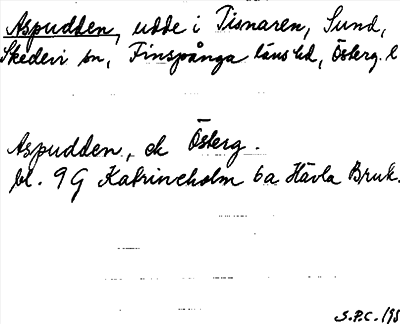 Aspudden, udde i Tisnaren, Sund,
Skedevi sn, Finspånga läns hd, Österg. l
Aspudden, ek Österg.
bl. 9G Katrineholm 6a Hävla Bruk.
S.P.C. 195